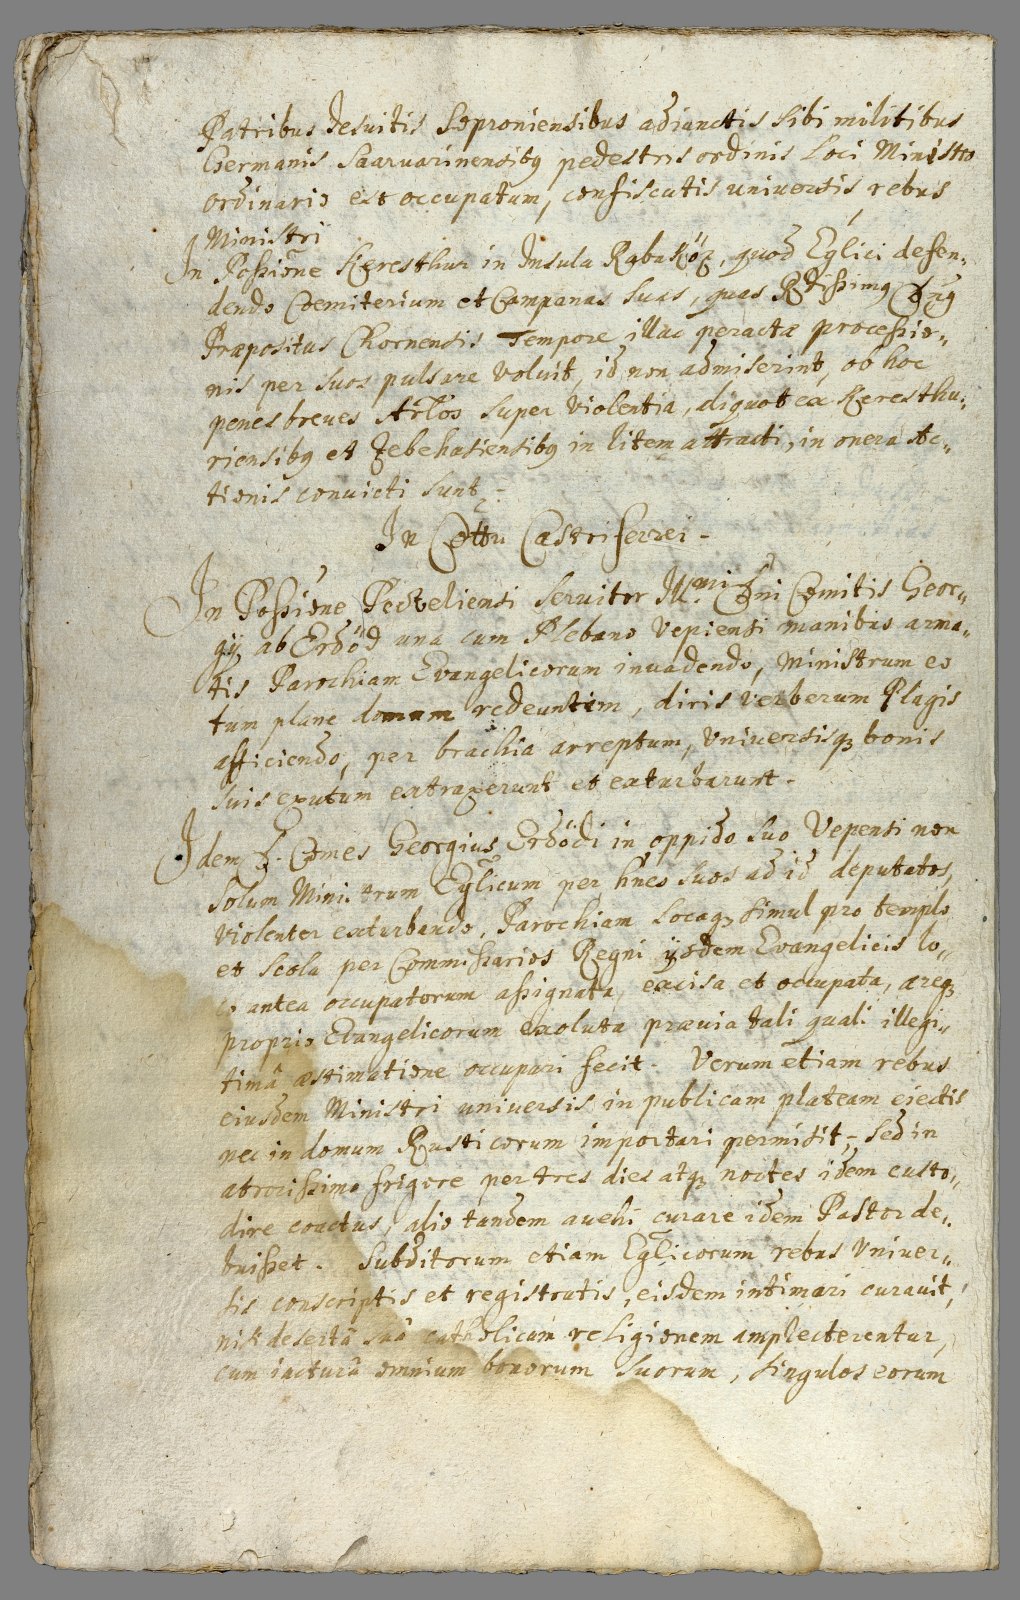 Patribus Jesuitis Soproniensibus adiunctis sibi militibus
Germanis Saaruarinensibq pedestris ordinis Loci Ministro
ordinario est occupatum, confiscatis universis rebus
Ministri
In Possione Keresthur in Insula Rabaköz, quod Eglici defen„
dendo Coemiterium et Campanas suas, quas Rdissimq Dnq
Præpositus Chornensis Tempore illac peractæ processio„
nis per suos pulsare voluit, id non admiserint, ob hoc
penes breues Artlos super violentia, aliquot ex Keresthu„
riensibq et Jebehasiensibq in litem attracti, in onera Ac„
tionis conuicti sunt.
In Cottu Castriferrei -
In Possione Pecteliensi Seruitor Illmi Dni Comitis Geor„
gÿ ab Erdöd una cum Plebano Vepiensi manibus arma„
tis Parochiam Evangelicorum inuadendo, Ministrum eo
tum plane domum redeuntem, diris verberum Plagis
afficiendo, per brachia arreptum, Vniuersisq bonis
suis exutum extraxerunt et exturbarunt -
Idem D. Comes Georgius Erdödi in oppido suo Vepensi non
Solum Ministrum Eglicum per hnes suos ad id deputatos,
violenter exturbando, Parochiam Locaq simul pro templo
et Scola per Commissarios Regni ÿsdem Evangelicis lo„
co antea occupatorum assignata, excisa et occupata, æreq
proprio Evangelicorum exoluta prævia tali quali illegi„
timâ æstimatione occupari fecit. Verum etiam rebus
eiusdem Ministri universis in publicam plateam eiectis
nec in domum Rusticorum importari permisit, sed in
atrocissimo frigore per tres dies atq noctes idem custo„
dire coactus, alio tandem auehi curare idem Pastor de„
buisset. Subditorum etiam Eglicorum rebus Vniver„
sis conscriptis et registratis, eisdem intimari curauit,
nisi desertâ suâ catholicam religionem amplecterentur,
cum iacturâ omnium bonorum suorum, singulos eorum